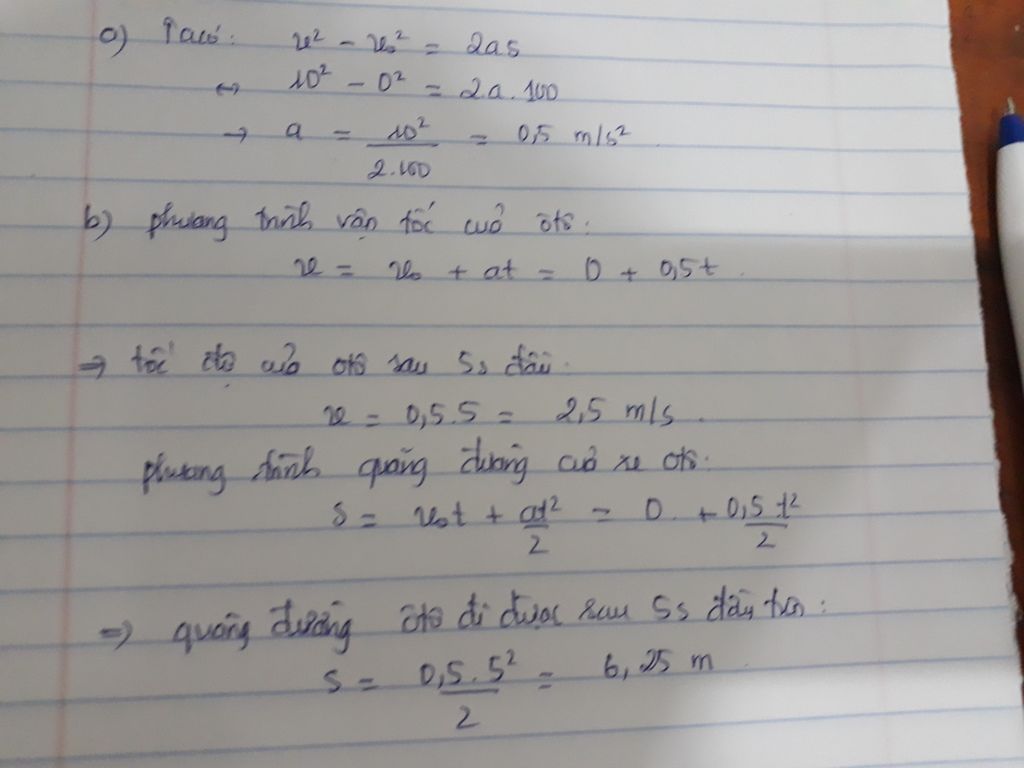 a) Ta có: v² - v₀² = 2as
↔ 10² - 0² = 2.a.100
→ a = 10²/2.100 = 0,5 m/s²
b) phương trình vận tốc của ôtô:
v = v₀ + at = 0 + 0,5t
⇒ tốc độ của ôtô sau 5s đầu:
v = 0,5.5 = 2,5 m/s.
phương trình quãng đường của xe ôtô:
s = v₀t + at²/2 = 0 + 0,5t²/2
⇒ quãng đường ôtô đi được sau 5s đầu tiên:
s = 0,5.5²/2 = 6,25 m